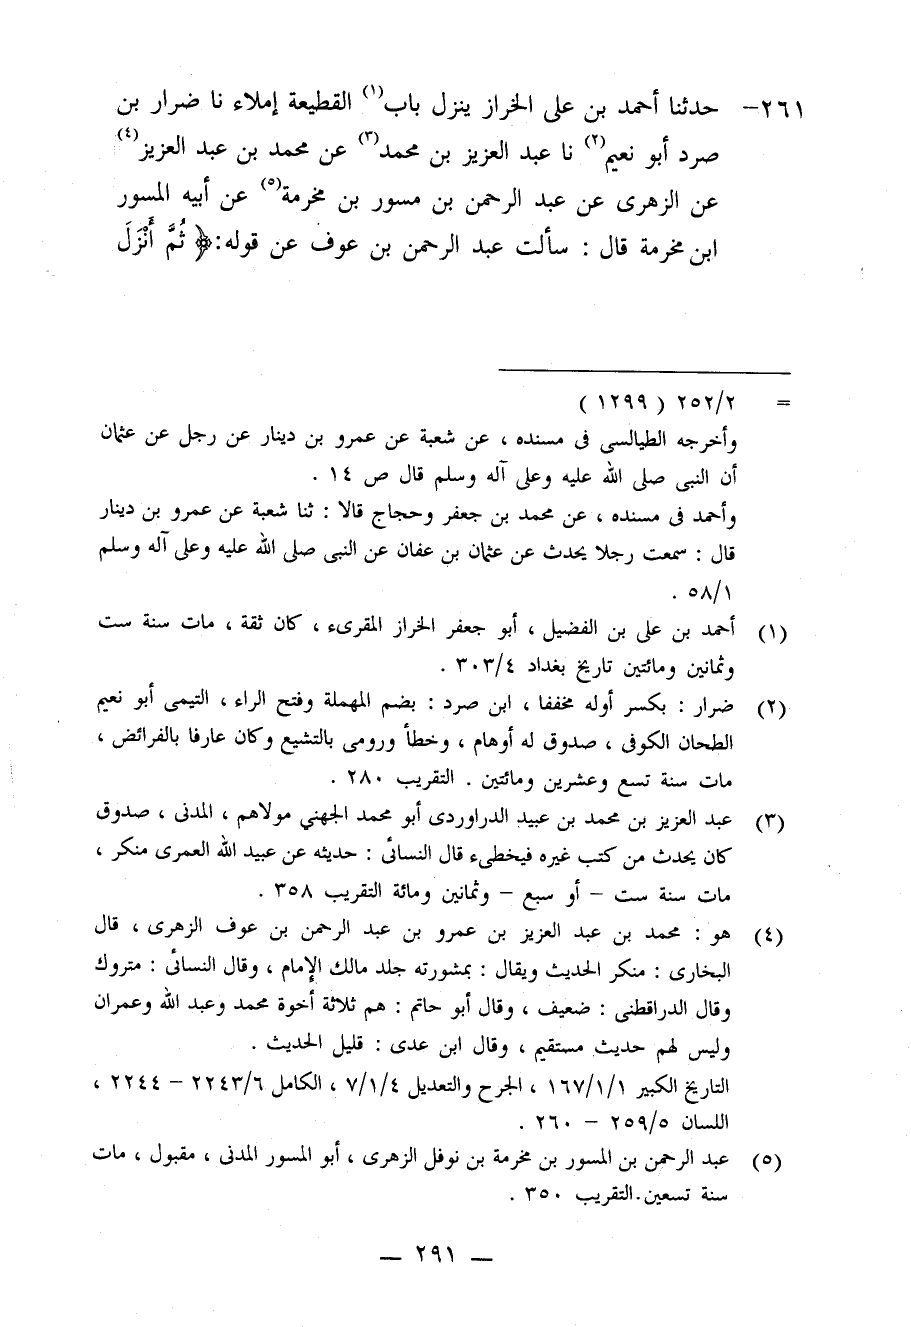 ٢٦١- حدثنا أحمد بن على الخراز ينزل باب(١) القطيعة إملاء نا ضرار بن
صرد أبو نعيم(٢) نا عبد العزيز بن محمد(٣) عن محمد بن عبد العزيز(٤)
عن الزهرى عن عبد الرحمن بن مسور بن مخرمة(٥) عن أبيه المسور
ابن مخرمة قال : سألت عبد الرحمن بن عوف عن قوله:﴿ ثُمَّ أَنْزَلَ
= ٢٥٢/٢ ( ١٢٩٩ )
وأخرجه الطيالسى فى مسنده ، عن شعبة عن عمرو بن دينار عن رجل عن عثمان
أن النبى صلى الله عليه وعلى آله وسلم قال ص ١٤ .
وأحمد فى مسنده ، عن محمد بن جعفر وحجاج قالا : ثنا شعبة عن عمرو بن دينار
قال : سمعت رجلا يحدث عن عثمان بن عفان عن النبى صلى الله عليه وعلى آله وسلم
٥٨/١ .
(١) أحمد بن على بن الفضيل ، أبو جعفر الخراز المقرىء ، كان ثقة ، مات سنة ست
وثمانين ومائتين تاريخ بغداد ٣٠٣/٤ .
(٢) ضرار : بكسر أوله مخففا ، ابن صرد : بضم المهملة وفتح الراء ، التيمى أبو نعيم
الطحان الكوفى ، صدوق له أوهام ، وخطأ ورومى بالتشيع وكان عارفا بالفرائض ،
مات سنة تسع وعشرين ومائتين . التقريب ٢٨٠ .
(٣) عبد العزيز بن محمد بن عبيد الدراوردى أبو محمد الجهني مولاهم ، المدنى ، صدوق
كان يحدث من كتب غيره فيخطىء قال النسائى : حديثه عن عبيد الله العمرى منكر ،
مات سنة ست – أو سبع – وثمانين ومائة التقريب ٣٥٨ .
(٤) هو : محمد بن عبد العزيز بن عمرو بن عبد الرحمن بن عوف الزهرى ، قال
البخارى : منكر الحديث ويقال : بمشورته جلد مالك الإمام ، وقال النسائى : متروك
وقال الدراقطنى : ضعيف ، وقال أبو حاتم : هم ثلاثة أخوة محمد وعبد الله وعمران
وليس لهم حديث مستقيم ، وقال ابن عدى : قليل الحديث .
التاريخ الكبير ١٦٧/١/١ ، الجرح والتعديل ٧/١/٤ ، الكامل ٢٢٤٣/٦ – ٢٢٤٤ ،
اللسان ٢٥٩/٥ – ٢٦٠ .
(٥) عبد الرحمن بن المسور بن مخرمة بن نوفل الزهرى ، أبو المسور المدنى ، مقبول ، مات
سنة تسعين. التقريب ٣٥٠ .
— ٢٩١ —